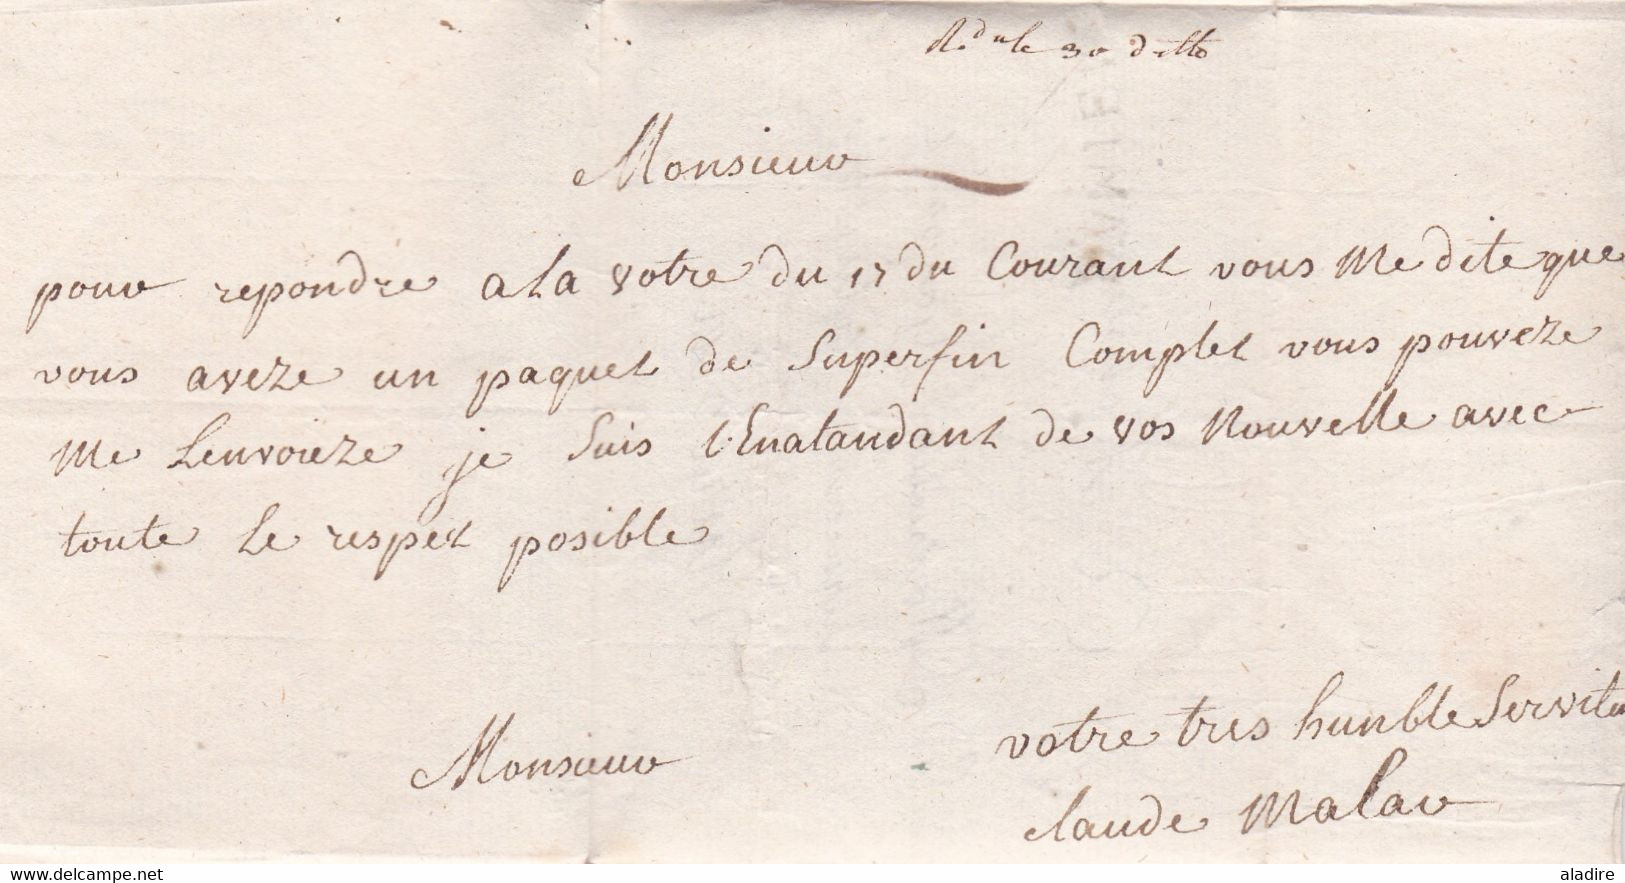 R.du le 30 ditto
Monsieur
pour repondre a la votre du 17 du Courant vous Me dite que
vous aveze un paquet de Superfin Complet vous pouveze
Me Lenvoieze je suis l'Enatandant de vos Nouvelle avec
toute le respet posible
votre tres hunble Serviteu
Monsieur
claude Malar
delcampe.net
aladire